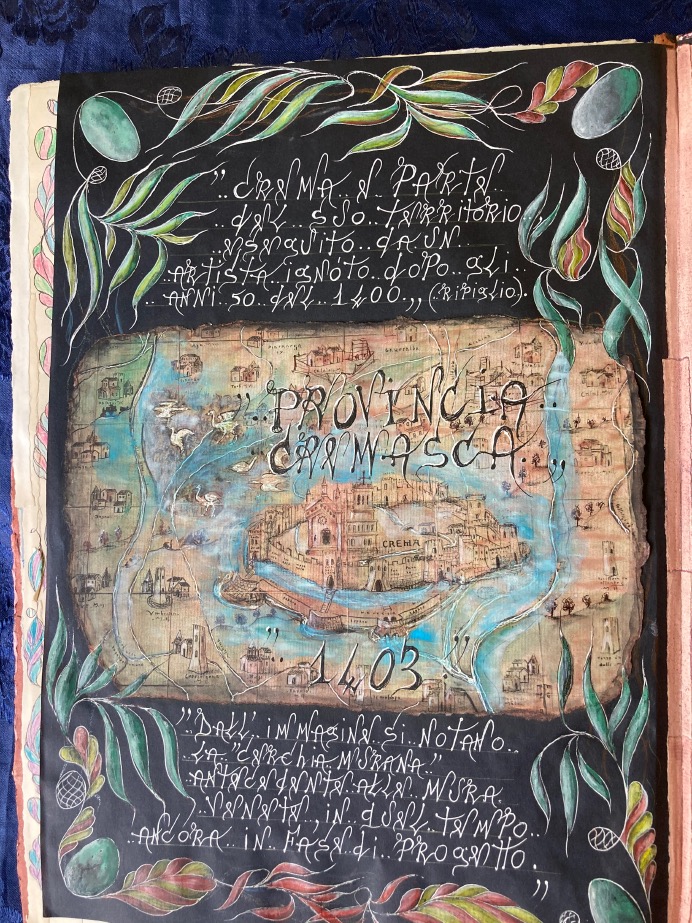 "..CREMA E PARTE..
..DEL..SUO..TERRITORIO
..ESEGUITO..DA UN..
..ARTISTA..IGNOTO..DOPO..GLI..
..ANNI..50..DEL..1400.,,(RIPIGLIO).
"..PROVINCIA..
CREMASCA..,,
CREMA
"..1403..,,
"..DALL'IMMAGINE..SI..NOTANO..
..LA.."CERCHIA..MURANA.."
..ANTECEDENTE..ALLE..MURA..
..VENETE..,IN..QUEL..TEMPO..
..ANCORA..IN..FASE..DI..PROGETTO.,,